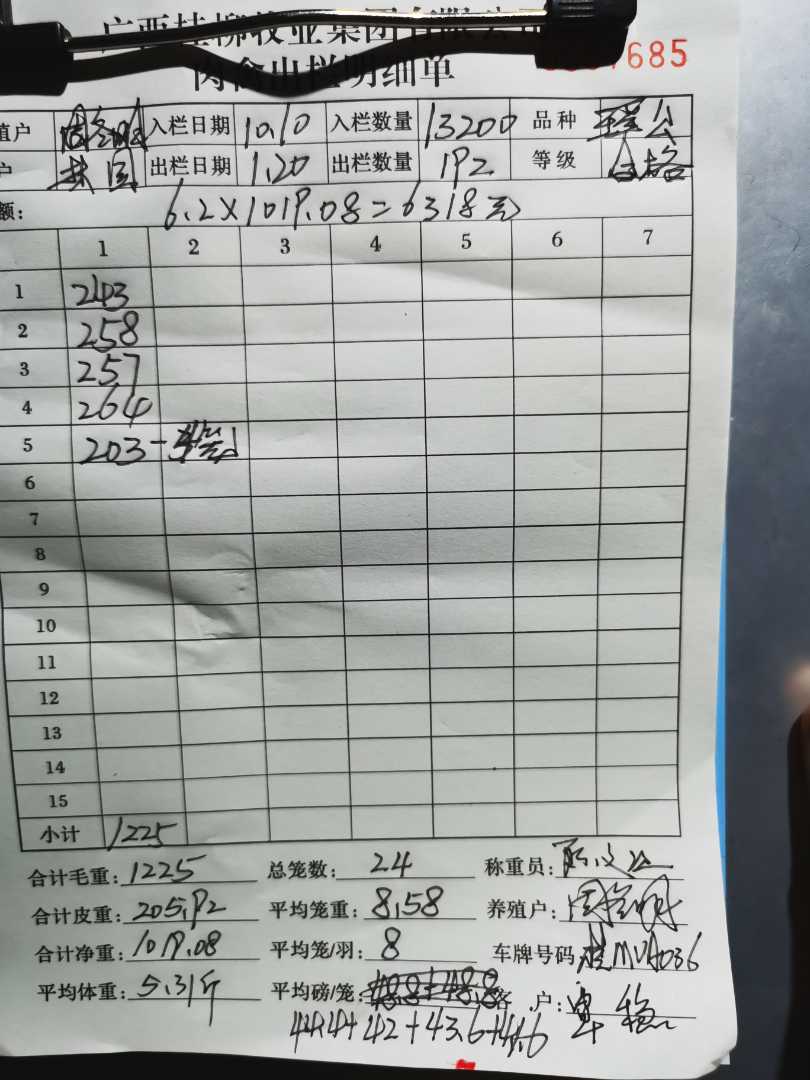 广西桂柳牧业集团有限公司
肉禽出栏明细单
7685
殖户 入栏日期 10.10 入栏数量 13200 品种
户 出栏日期 1.20 出栏数量 192 等级 合格
额: 6.2×1019.08=6318元
1 2 3 4 5 6 7
1 243
2 258
3 257
4 264
5 203-
6
7
8
9
10
11
12
13
14
15
小计 1225
合计毛重: 1225 总笼数: 24 称重员:
合计皮重: 205.92 平均笼重: 8.58 养殖户:
合计净重: 1019.08 平均笼/羽: 8 车牌号码 桂MUA036
平均体重: 5.31斤 平均磅/笼: 客户:
44.4+42+43.6+41.6